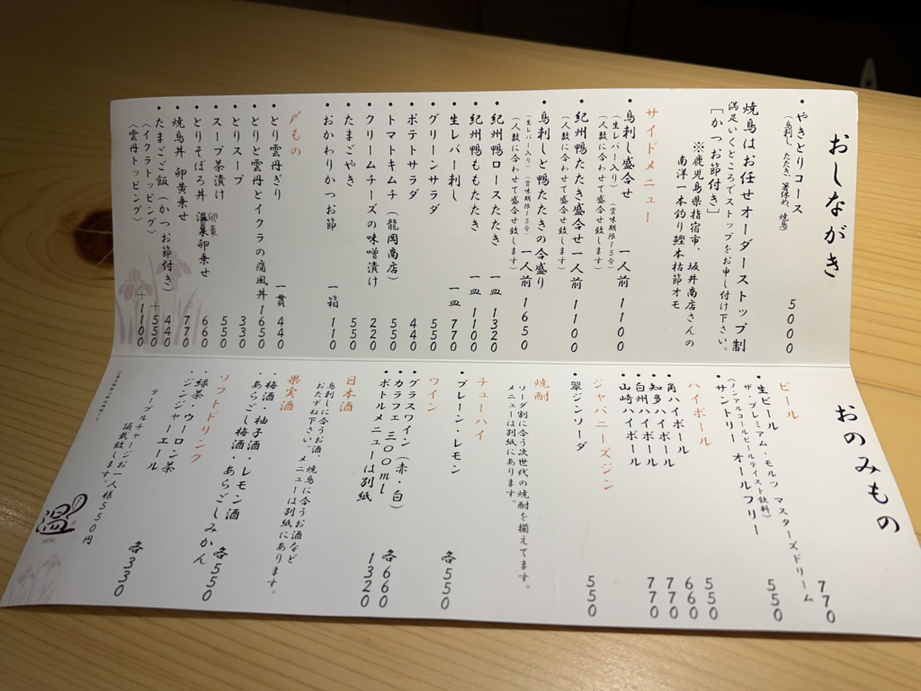 おしながき
・やきとりコース 5000
(鳥刺し、たたき、箸休め、焼鳥)
焼鳥はお任せオーダーストップ制
満足いくところでストップをお申し付け下さい。
「かつお節付き」
※鹿児島県指宿市、坂井商店さんの
南洋一本釣り鰹本枯節オモ
サイドメニュー
・鳥刺し盛合せ 一人前 1100
(生レバー入り)(賞味期限15分)
(人数に合わせて盛合せ致します)
・紀州鴨たたき盛合せ 一人前 1100
(人数に合わせて盛合せ致します)
・鳥刺しと鴨たたきの合盛り 一人前 1650
(生レバー入り)(賞味期限15分)
(人数に合わせて盛合せ致します)
・紀州鴨ロースたたき 一皿 1320
・紀州鴨ももたたき 一皿 1100
・生レバー刺し 一皿 770
・グリーンサラダ 550
・ポテトサラダ 440
・トマトキムチ(龍岡商店) 550
・クリームチーズの味噌漬け 220
・たまごやき 550
・おかわりかつお節 一箱 110
〆もの
・とり雲丹ぎり 一貫 440
・とりと雲丹とイクラの痛風丼 1650
・とりスープ 330
・スープ茶漬け 550
・とりそぼろ丼 卵黄乗せ 660
・焼鳥丼 卵黄乗せ 770
・たまごご飯(かつお節付き) 440
(イクラトッピング) +550
(雲丹トッピング) +1100
おのみもの
ビール
・生ビール 770
ザ・プレミアム・モルツ マスターズドリーム
(ノンアルコールビールテイスト飲料)
・サントリー オールフリー 550
ハイボール
・角ハイボール 550
・知多ハイボール 660
・白州ハイボール 770
・山崎ハイボール 770
ジャパニーズジン
・翠ジンソーダ 550
焼酎
ソーダ割に合う次世代の焼酎を揃えてます。
メニューは別紙にあります。
チューハイ
・プレーン・レモン 各550
ワイン
・グラスワイン(赤・白) 各660
・カラフェ・300ml 1320
・ボトルメニューは別紙
日本酒
鳥刺しに合うお酒、焼鳥に合うお酒など
おたずね下さい。メニューは別紙にあります。
果実酒
・梅酒・柚子酒・レモン酒
・あらごし梅酒・あらごしみかん 各550
ソフトドリンク
・緑茶・ウーロン茶
・ジンジャーエール 各330
テーブルチャージお一人様550円
頂戴致します。
温
ATSU